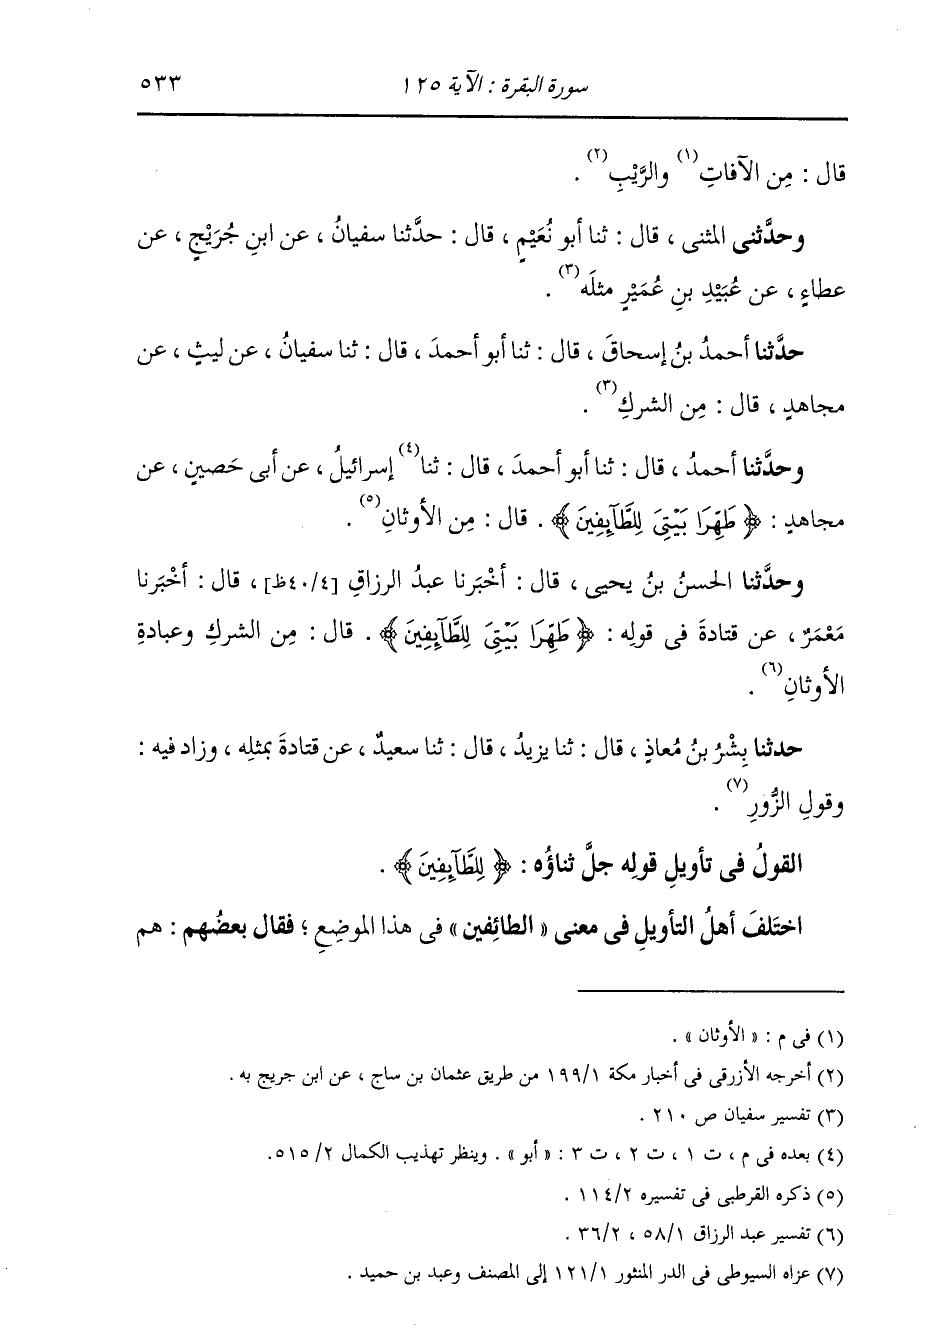 سورة البقرة : الآية ١٢٥ ٥٣٣
قال : مِن الآفاتِ(١) والرَّيْبِ(٢) .
وحدَّثنى المثنى ، قال : ثنا أبو نُعَيْمٍ ، قال : حدَّثنا سفيانُ ، عن ابنِ جُرَيْجٍ ، عن
عطاءٍ ، عن عُبَيْدِ بنِ عُمَيْرٍ مثلَه(٣) .
حدَّثنا أحمدُ بنُ إسحاقَ ، قال : ثنا أبو أحمدَ ، قال : ثنا سفيانُ ، عن ليثٍ ، عن
مجاهدٍ ، قال : مِن الشركِ(٣) .
وحدَّثنا أحمدُ ، قال : ثنا أبو أحمدَ ، قال : ثنا(٤) إسرائيلُ ، عن أبى حَصينٍ ، عن
مجاهدٍ : ﴿ طَهِّرَا بَيْتِىَ لِلطَّآئِفِينَ ﴾ . قال : مِن الأوثانِ(٥) .
وحدَّثنا الحسنُ بنُ يحيى ، قال : أخْبَرنا عبدُ الرزاقِ [٤٠/٤ظ] ، قال : أخْبَرنا
مَعْمَرٌ ، عن قتادةَ فى قولِه : ﴿ طَهِّرَا بَيْتِىَ لِلطَّآئِفِينَ ﴾ . قال : مِن الشركِ وعبادةِ
الأوثانِ(٦) .
حدثنا بِشْرُ بنُ مُعاذٍ ، قال : ثنا يزيدُ ، قال : ثنا سعيدٌ ، عن قتادةَ بمثلِه ، وزاد فيه :
وقولِ الزُّورِ(٧) .
القولُ فى تأويلِ قولِه جلَّ ثناؤُه : ﴿ لِلطَّآئِفِينَ ﴾ .
اختَلفَ أهلُ التأويلِ فى معنى « الطائِفين » فى هذا الموضِعِ ؛ فقال بعضُهم : هم
(١) فى م : « الأوثان » .
(٢) أخرجه الأزرقى فى أخبار مكة ١٩٩/١ من طريق عثمان بن ساج ، عن ابن جريج به .
(٣) تفسير سفيان ص ٢١٠ .
(٤) بعده فى م ، ت ١ ، ت ٢ ، ت ٣ : « أبو » . وينظر تهذيب الكمال ٥١٥/٢.
(٥) ذكره القرطبى فى تفسيره ١١٤/٢ .
(٦) تفسير عبد الرزاق ٥٨/١ ، ٣٦/٢ .
(٧) عزاه السيوطى فى الدر المنثور ١٢١/١ إلى المصنف وعبد بن حميد .